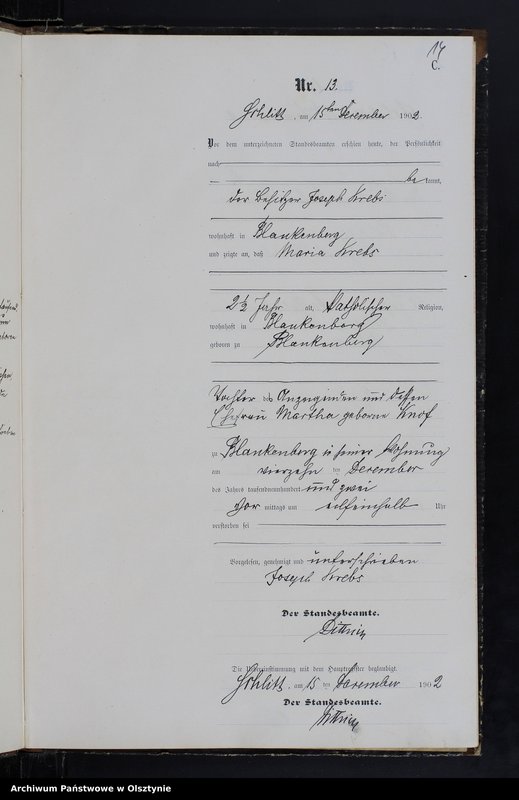 14
C.
Nr. 13.
am 15ten December 1902.
Vor dem unterzeichneten Standesbeamten erschien heute, der Persönlichkeit
nach
bekannt,
der Besitzer Joseph Krebs
wohnhaft in Blankenberg
und zeigte an, daß Maria Krebs
2½ Jahr alt, katholischer Religion,
wohnhaft in Blankenberg
geboren zu Blankenberg
Tochter des Anzeigenden und dessen
Ehefrau Martha geborene Knof
zu Blankenberg in seiner Wohnung
am vierzehn ten December
des Jahres tausendneunhundert und zwei
Vor mittags um Uhr
verstorben sei
Vorgelesen, genehmigt und unterschrieben
Joseph Krebs
Der Standesbeamte.
Die Übereinstimmung mit dem Hauptregister beglaubigt.
am 15 ten December 1902
Der Standesbeamte.
Archiwum Państwowe w Olsztynie